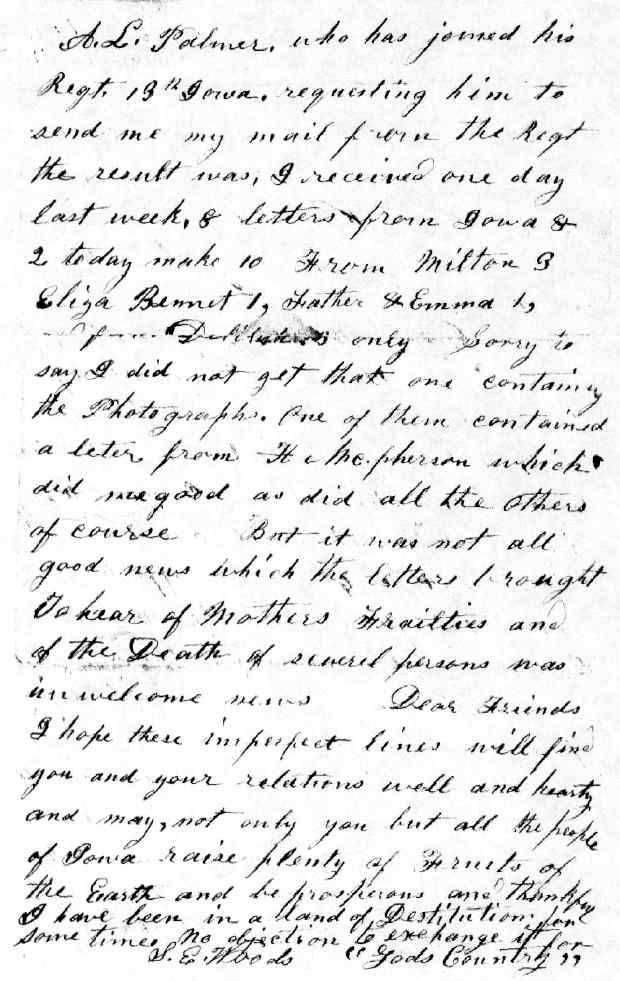 A. L. Palmer, who has joined his
Regt. 13th Iowa. requesting him to
send me my mail from the Regt
the result was, I received one day
last week, 8 letters from Iowa &
2 today make 10 From Milton 3
Eliza Bennet 1, Father & Emma 1,
only Sorry to
say I did not get that one containing
the Photograph. One of them contained
a leter from H Mcpherson which
did me good as did all the others
of course But it was not all
good news which the letters brought
To hear of Mothers Frailties and
of the Death of severel persons was
unwelcome news Dear Friends
I hope these imperfect lines will find
you and your relations well and hearty
and may, not only you but all the people
of Iowa raise plenty of Fruits of
the Earth and be prosperous and thankful
I have been in a land of Destitution for
some time. No objection to exchange it for
S. E. Woods "Gods Country"